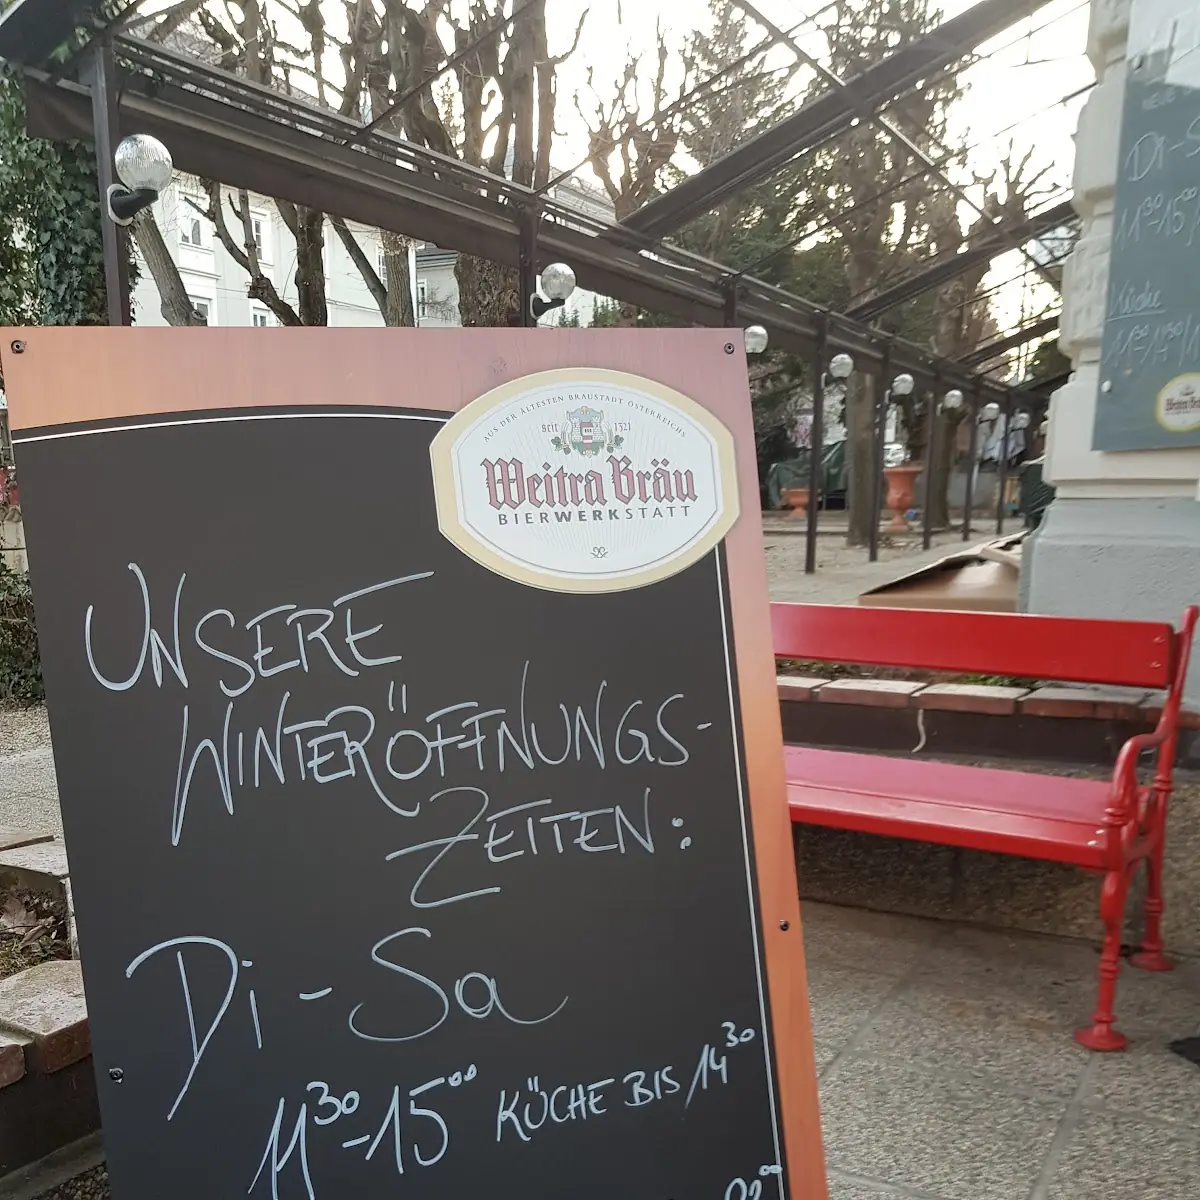 AUS DER ÄLTESTEN BRAUSTADT ÖSTERREICHS
seit 1321
Weitra Bräu
BIERWERKSTATT
UNSERE
WINTERÖFFNUNGS-
ZEITEN:
Di - Sa
11³⁰-15⁰⁰ KÜCHE BIS 14³⁰
Di-S
11³⁰-15⁰⁰
Küche